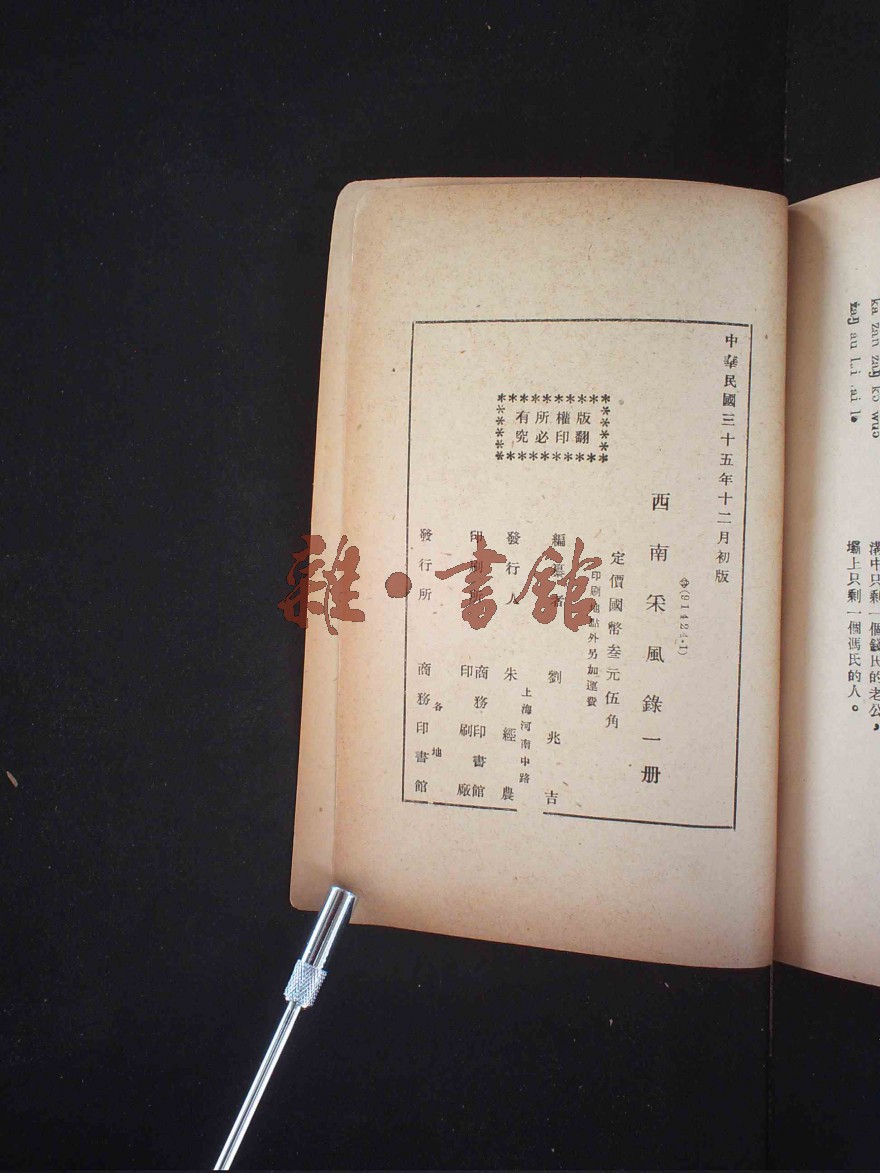 中華民國三十五年十二月初版
(91424·1)
西南采風錄一册
定價國幣叁元伍角
印刷地點外另加運費
版權所有
翻印必究
編纂者 劉兆吉
上海河南中路
發行人 朱經農
印刷所 商務印書館
印刷廠
各地
發行所 商務印書館
雜·書館
ka zan zaŋ kɔ wuɔ
溝中只剩一個錢氏的老公，
壩上只剩一個馮氏的人。